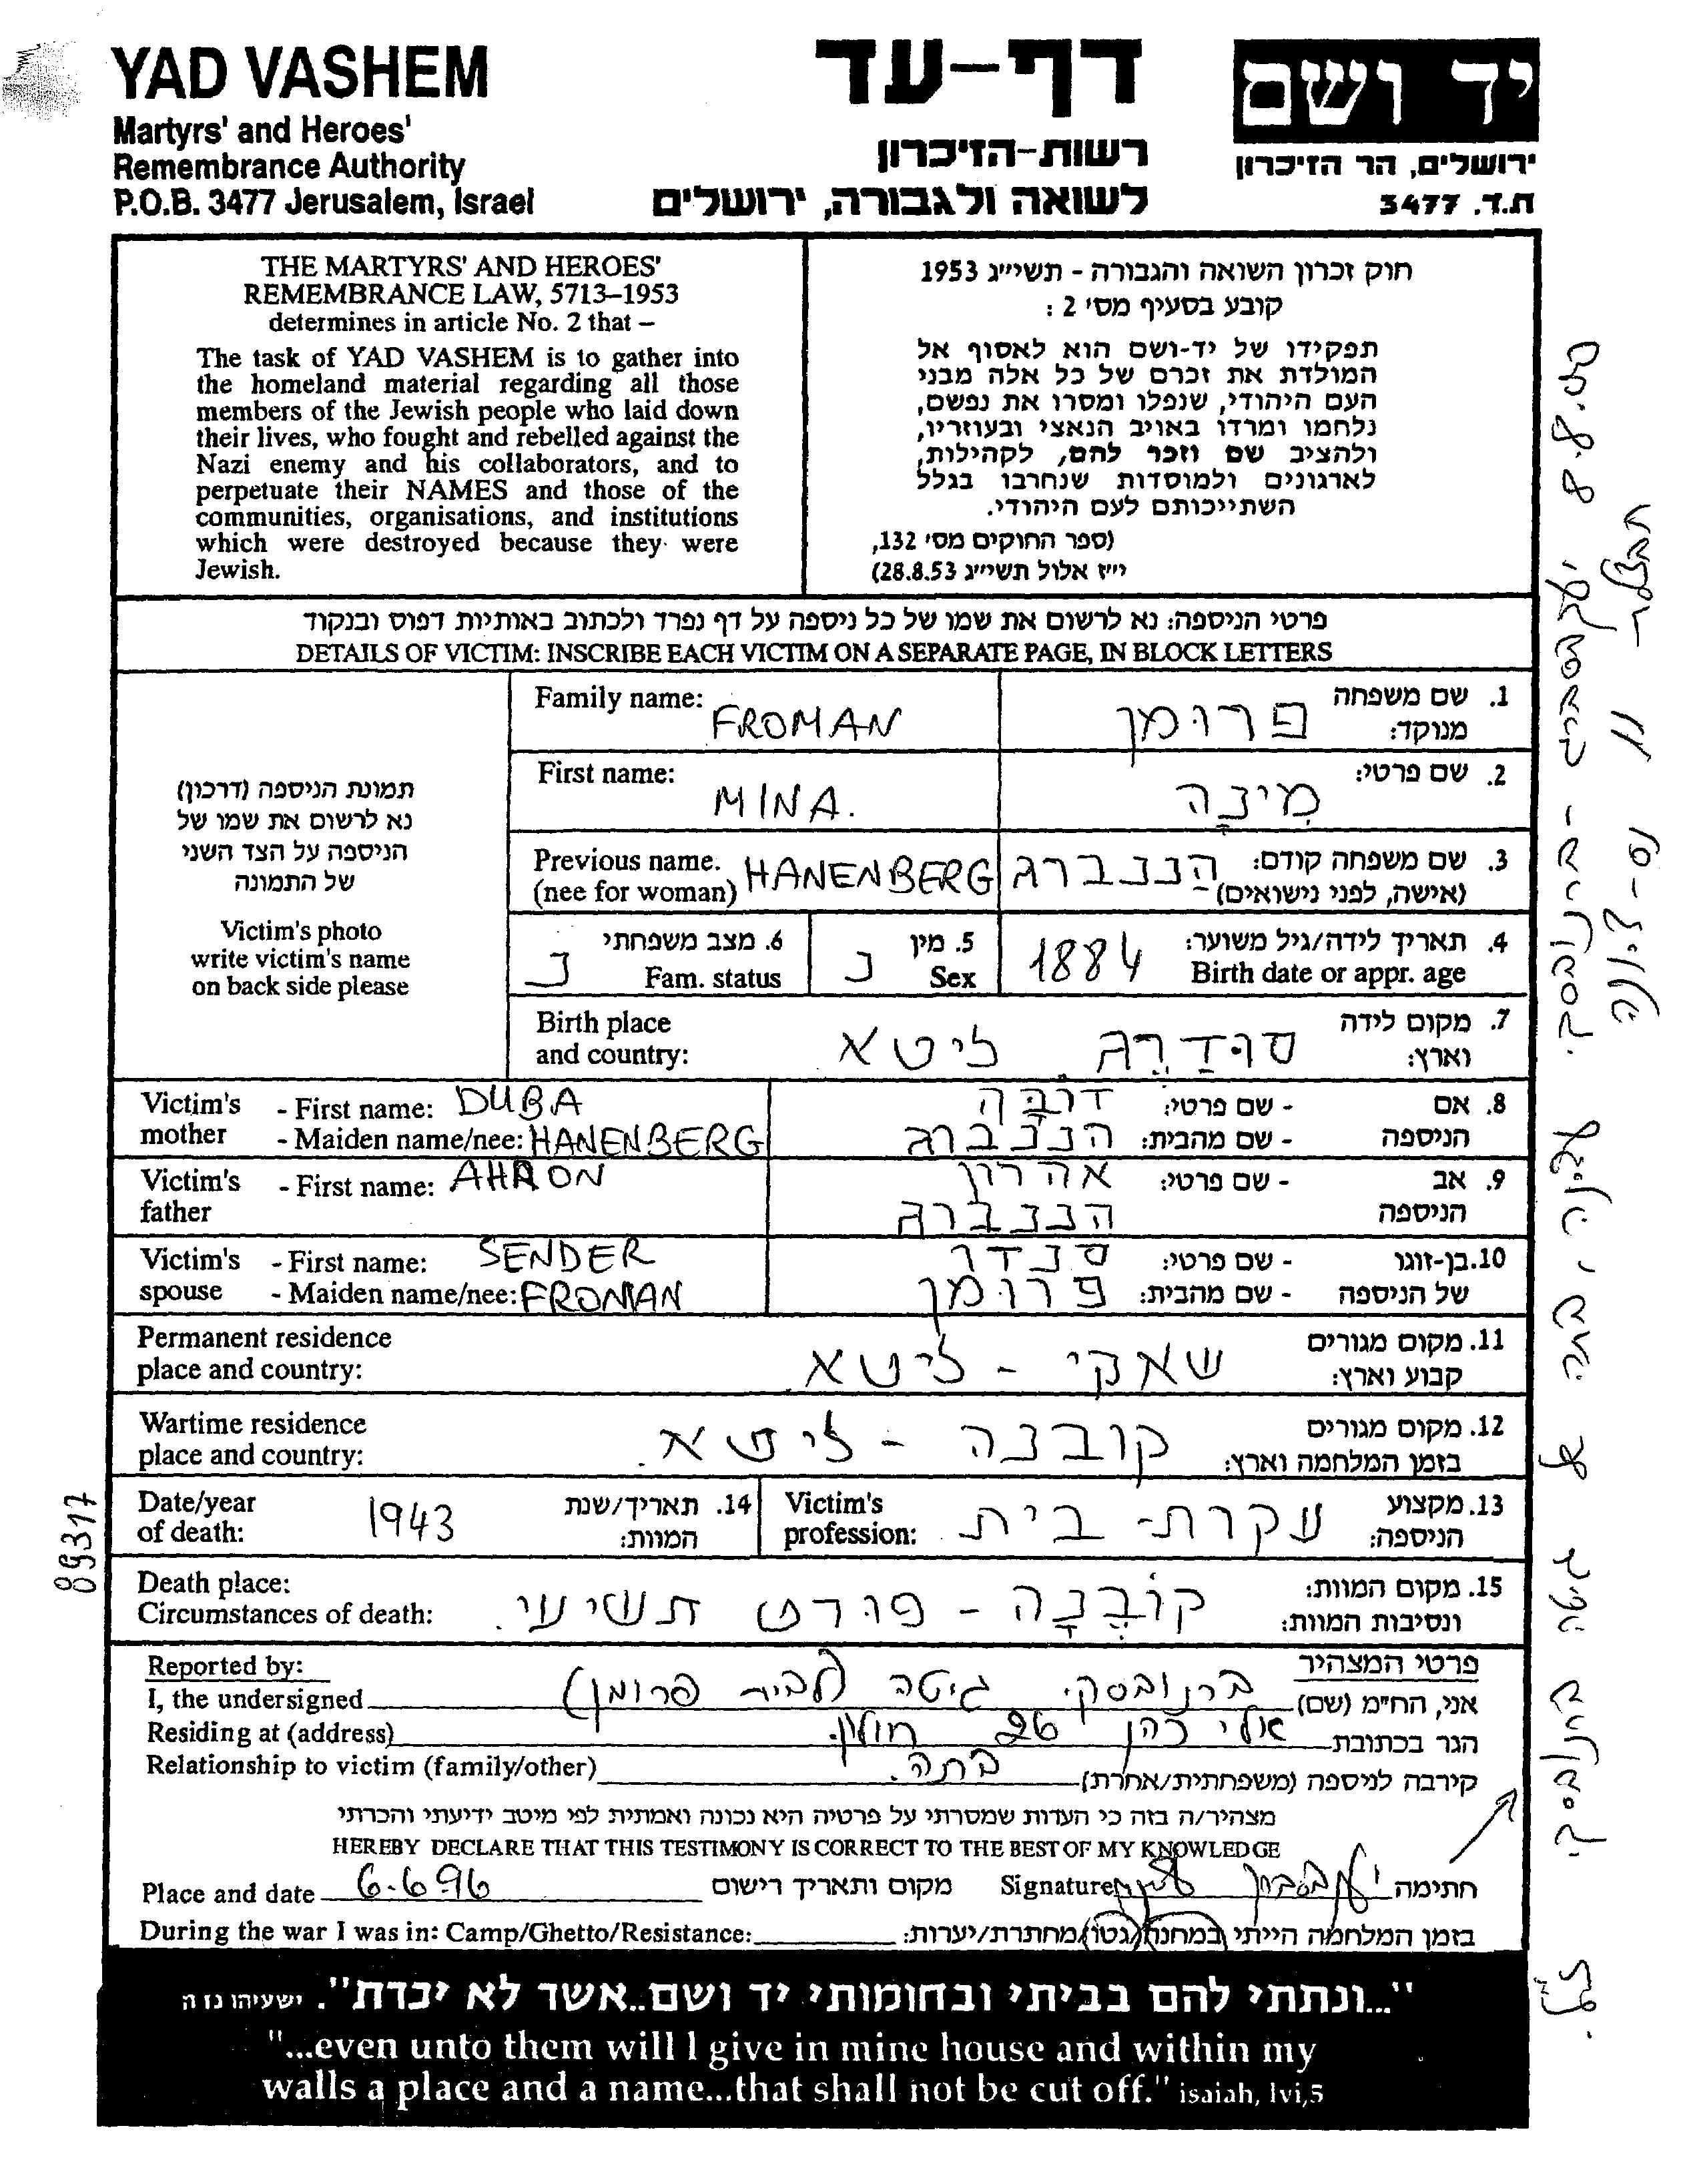 YAD VASHEM
Martyrs' and Heroes'
Remembrance Authority
P.O.B. 3477 Jerusalem, Israel
דף-עד
רשות-הזיכרון
לשואה ולגבורה, ירושלים
יד ושם
ירושלים, הר הזיכרון
ת.ד. 3477
THE MARTYRS' AND HEROES'
REMEMBRANCE LAW, 5713–1953
determines in article No. 2 that –
The task of YAD VASHEM is to gather into
the homeland material regarding all those
members of the Jewish people who laid down
their lives, who fought and rebelled against the
Nazi enemy and his collaborators, and to
perpetuate their NAMES and those of the
communities, organisations, and institutions
which were destroyed because they were
Jewish.
חוק זכרון השואה והגבורה - תשי״ג 1953
קובע בסעיף מס׳ 2 :
תפקידו של יד-ושם הוא לאסוף אל
המולדת את זכרם של כל אלה מבני
העם היהודי, שנפלו ומסרו את נפשם,
נלחמו ומרדו באויב הנאצי ובעוזריו,
ולהציב שם וזכר להם, לקהילות,
לארגונים ולמוסדות שנחרבו בגלל
השתייכותם לעם היהודי.
(ספר החוקים מס׳ 132,
י״ז אלול תשי״ג 28.8.53)
פרטי הניספה: נא לרשום את שמו של כל ניספה על דף נפרד ולכתוב באותיות דפוס ובנקוד
DETAILS OF VICTIM: INSCRIBE EACH VICTIM ON A SEPARATE PAGE, IN BLOCK LETTERS
תמונת הניספה (דרכון)
נא לרשום את שמו של
הניספה על הצד השני
של התמונה
Victim's photo
write victim's name
on back side please
Family name: FROMAN
1. שם משפחה מנוקד: פרומן
First name: MINA.
2. שם פרטי: מִינָה
Previous name. (nee for woman) HANENBERG
3. שם משפחה קודם: (אישה, לפני נישואים) הַננברג
4. תאריך לידה/גיל משוער: Birth date or appr. age 1884
5. מין Sex נ
6. מצב משפחתי Fam. status נ
Birth place and country:
7. מקום לידה וארץ: סוּדַרַג ליטא
Victim's mother - First name: DUBA
- Maiden name/nee: HANENBERG
8. אם הניספה - שם פרטי: דובָּה
- שם מהבית: הננברג
Victim's father - First name: AHRON
9. אב הניספה - שם פרטי: אהרון
הננברג
Victim's spouse - First name: SENDER
- Maiden name/nee: FROMAN
10. בן-זוגו של הניספה - שם פרטי: סנדר
- שם מהבית: פרומן
Permanent residence place and country:
11. מקום מגורים קבוע וארץ: שאקי - ליטא
Wartime residence place and country:
12. מקום מגורים בזמן המלחמה וארץ: קובנה - ליטא.
Victim's profession: 13. מקצוע הניספה: עקרת-בית
Date/year of death: 14. תאריך/שנת המוות: 1943
Death place:
Circumstances of death:
15. מקום המוות: ונסיבות המוות: קוֹבְנָה - פורט תשיעי.
Reported by: פרטי המצהיר
I, the undersigned אני, הח״מ (שם) ברנובסקי גיטה (לבית פרומן)
Residing at (address) הגר בכתובת אלי כהן 26 חולון.
Relationship to victim (family/other) קירבה לניספה (משפחתית/אחרת) בתה.
מצהיר/ה בזה כי העדות שמסרתי על פרטיה היא נכונה ואמתית לפי מיטב ידיעתי והכרתי
HEREBY DECLARE THAT THIS TESTIMONY IS CORRECT TO THE BEST OF MY KNOWLEDGE
Place and date 6.6.96 מקום ותאריך רישום Signature חתימה
During the war I was in: Camp/Ghetto/Resistance: בזמן המלחמה הייתי במחנה/גטו/מחתרת/יערות:
"...ונתתי להם בביתי ובחומותי יד ושם..אשר לא יכרת". ישעיהו נו ה
"...even unto them will I give in mine house and within my
walls a place and a name...that shall not be cut off." isaiah, lvi,5
89317
ברנובסקי
8.8.00
נס-ציונה
11